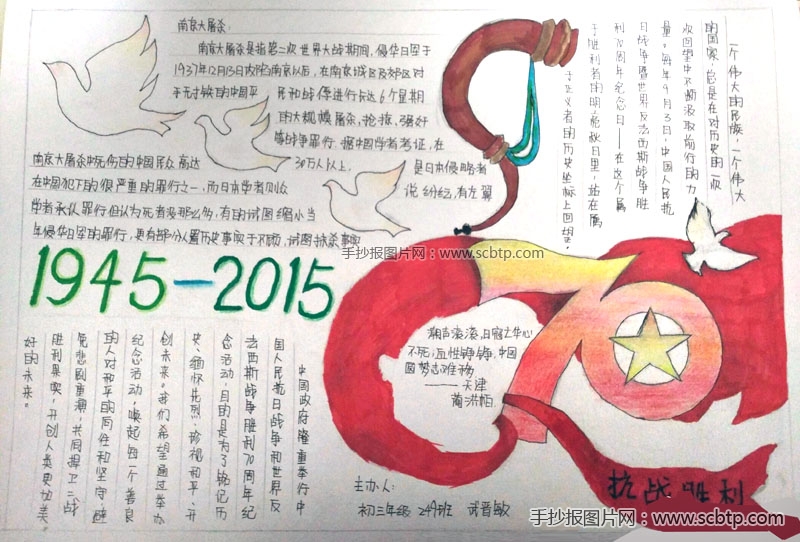 南京大屠杀:
南京大屠杀是指第二次世界大战期间,侵华日军于
1937年12月13日攻陷南京以后,在南京城区及郊区对
于手无寸铁的中国平民和战俘进行长达6个星期
的大规模屠杀、抢掠、强奸
等战争罪行。据中国学者考证,在
南京大屠杀中死伤的中国民众高达30万人以上。是日本侵略者
在中国犯下的很严重的罪行之一,而日本学者则众说纷纭,有左翼
学者承认罪行但认为死者没那么多,有的试图缩小当
年侵华日军的罪行,更有部分人置历史事实于不顾,试图抹杀事实
一个伟大的民族,一个伟大
的国家,总是在对历史的一次
次回望中不断汲取前行的力
量。每年9月3日,中国人民抗
日战争暨世界反法西斯战争胜
利70周年纪念日——在这个属
于胜利者的凯歌日里,站在属
于正义者的历史坐标上回望,
手抄报图片网:www.scbtp.com
1945-2015
70
潮声滚滚,日寇亡华心
不死;血性铮铮,中国
圆梦志难移
——天津
蔺洪柏
中国政府隆重举行中
国人民抗日战争和世界反
法西斯战争胜利70周年纪
念活动,目的是为了铭记历
史、缅怀先烈、珍视和平、开
创未来。我们希望通过举办
纪念活动,唤起每一个善良
的人对和平的向往和坚守,避
免悲剧重演,共同捍卫二战
胜利果实,开创人类更加美
好的未来。
抗战胜利
主办人:
初三年级 249班 武晋敏
手抄报图片网:www.scbtp.com